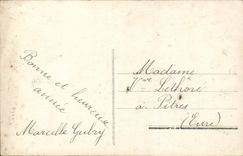 Bonne et heureuse
année
Marcelle Gubry
Madame
Vve Léthoré
à Pitres
(Eure)